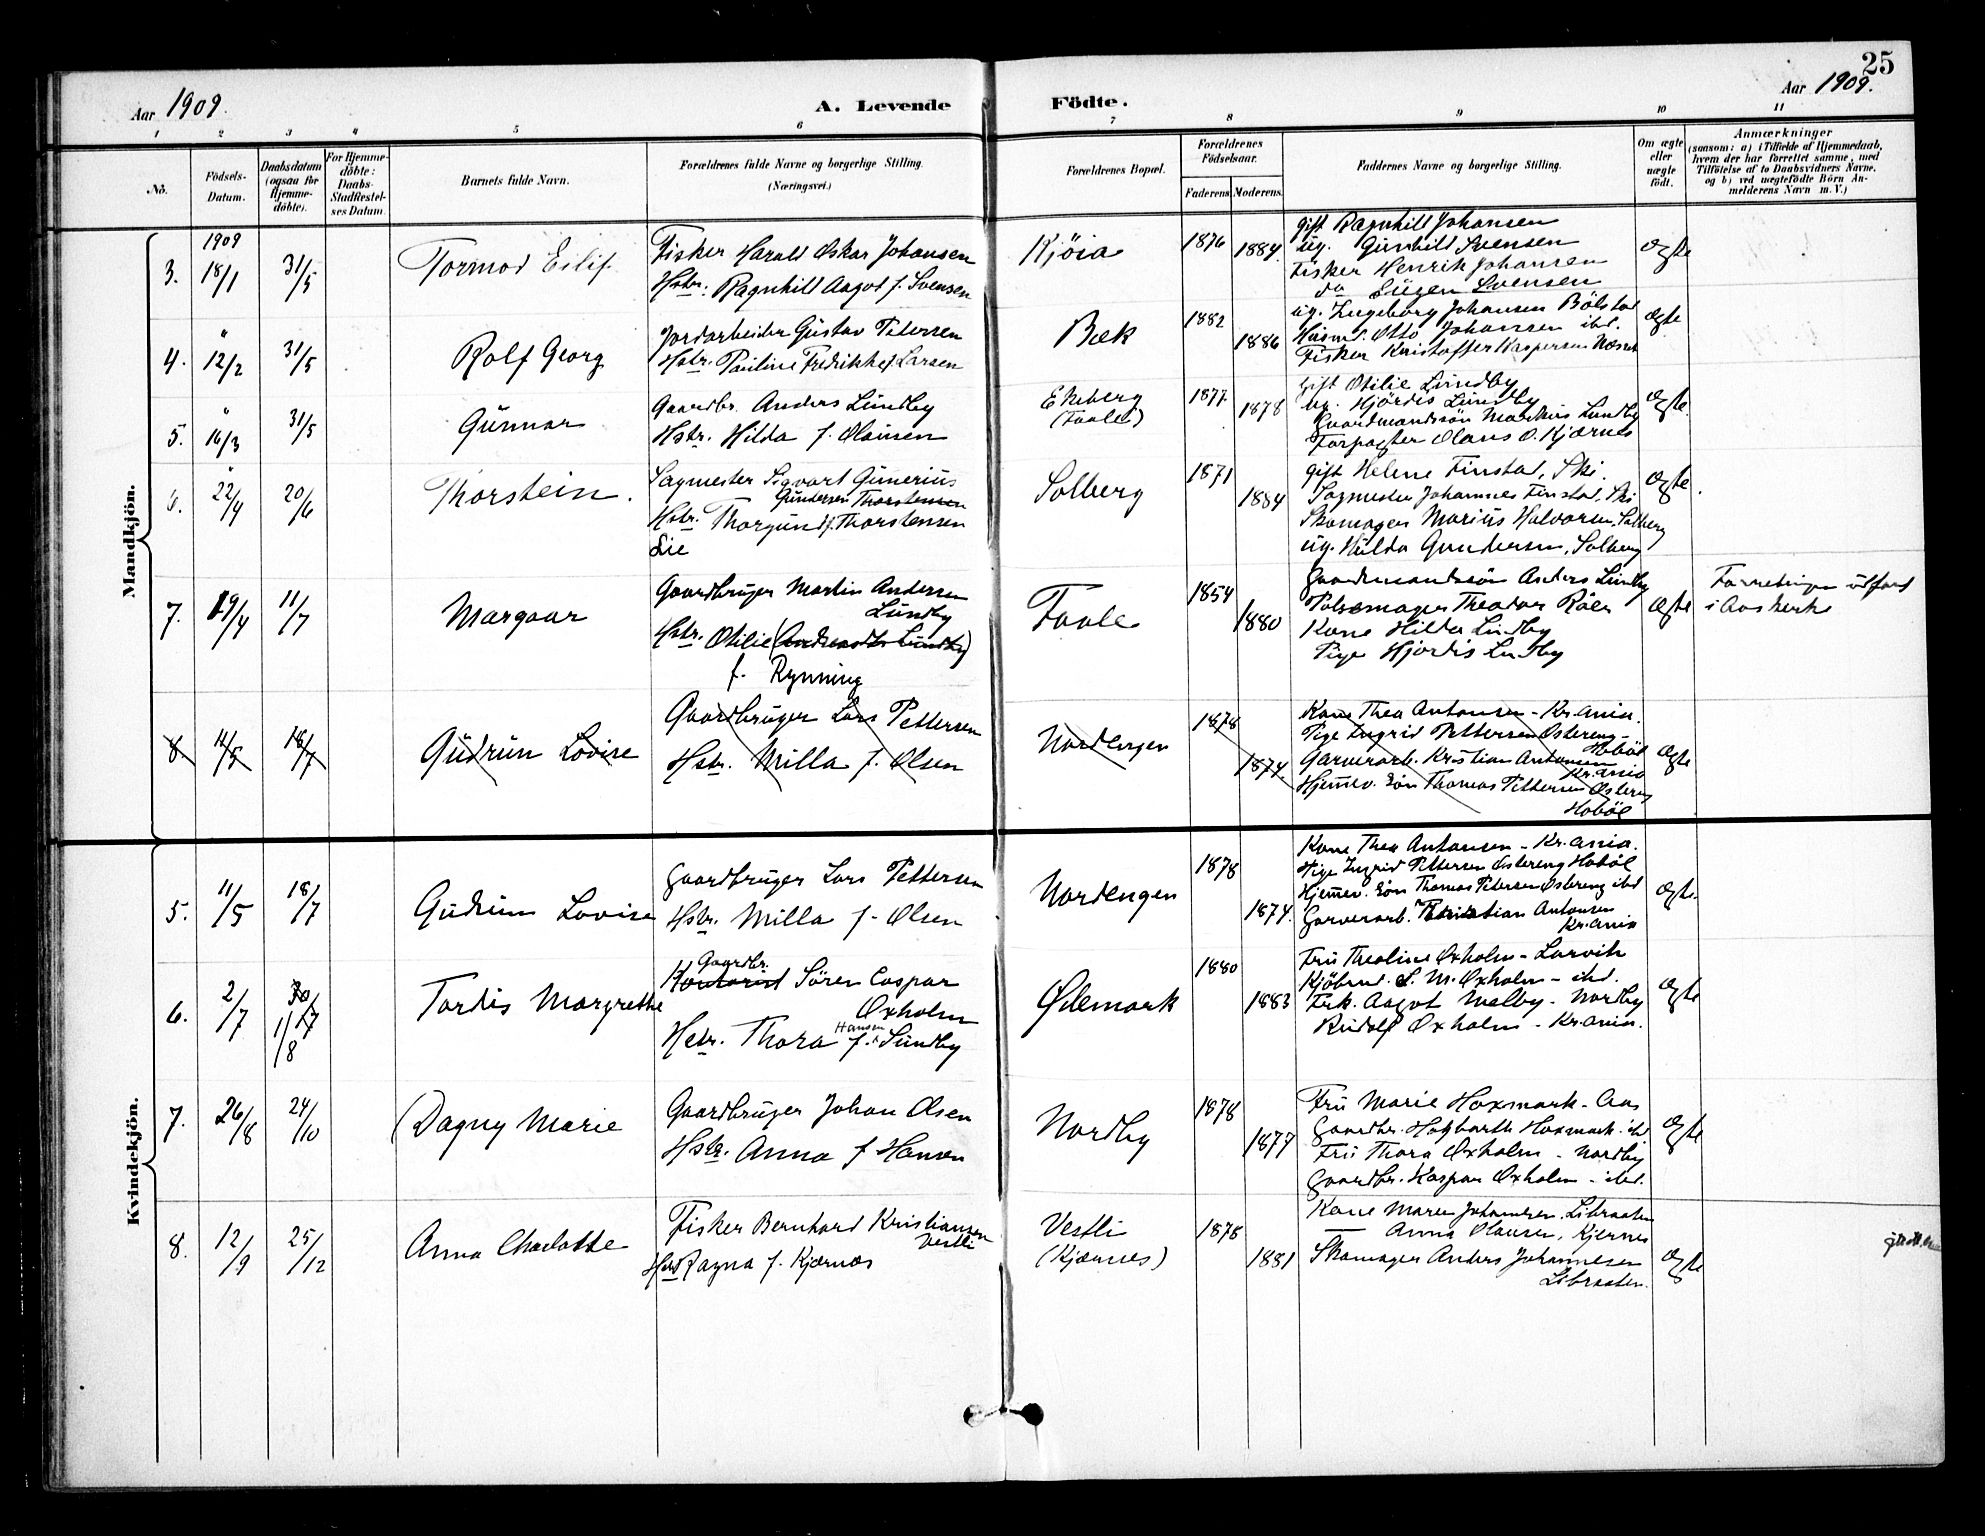 25
Aar 1909.
A. Levende Födte.
Aar 1909.
1 2 3 4 5 6 7 8 9 10 11
No.
Födsels-
Datum.
Daabsdatum
(ogsaa for
Hjemme-
döbte).
For Hjemme-
döbte:
Daabs-
Stadfæstel-
ses Datum.
Barnets fulde Navn.
Forældrenes fulde Navne og borgerlige Stilling.
(Næringsvei.)
Forældrenes Bopæl.
Forældrenes
Födselsaar.
Faderens Moderens.
Faddernes Navne og borgerlige Stilling.
Om ægte
eller
uægte
födt.
Anmærkninger
(saasom: a) i Tilfælde af Hjemmedaab,
hvem der har forrettet samme, med
Tilföielse af to Daabsvidners Navne,
og b) ved uægtefödte Börn An-
melderens Navn m. V.)
Mandkjön.
1909
3. 18/1 31/5 Tormod Eilif.
Fisker Harald Oskar Johansen
Hstr. Ragnhild Aagot f. Svensen
Kjöia 1876 1884.
gift Ragnhild Johansen
ug. Gunhild Svensen
Fisker Henrik Johansen
do Eugen Svensen
Ægte
4. " 12/2 31/5 Rolf Georg
Jordarbeider Gustav Petersen
Hstr. Pauline Fredrikke f. Larsen
Bæk 1882 1886
ug. Ingeborg Johansen Bölstad
Husmd. Otto Johansen ibd.
Fisker Kristoffer Kaspersen Næsset
Ægte
5. " 16/3 31/5 Gunnar
Gaardbr. Anders Lundby
Hstr. Hilda f. Olausen
Ekeberg
(Faale) 1877 1878
gift Otilie Lundby
ug. Hjördis Lundby
Gaardmandssön Markus Lundby
Forpagter Olaus O. Kjærnes
Ægte.
6. " 22/4 20/6 Thorstein.
Sagmester Sigvart Gunerius
Gundersen Thorstensen
Hstr. Thorgund f. Thorstensen
Lie
Solberg 1871 1884
gift Helene Finstad, Ski.
Sagmester Johannes Finstad, Ski
Skomager Marius Halvorsen, Solberg
ug. Hulda Gundersen, Solberg
Ægte.
7. 19/4 11/7 Margaar
Gaardbruger Martin Andersen
Lundby
Hstr. Otilie (Andreasdtr Lundby)
f. Rynning
Faale 1854 1880
Gaardmandssön Anders Lundby
Pölsemager Theodor Röer
Kone Hilda Lundby
Pige Hjördis Lundby
Ægte
Forretningen udfört
i Aas kirke
8 11/5 18/7 Gudrun Lovise
Gaardbruger Lars Pettersen
Hstr. Milla f. Olsen
Nordengen 1878 1874.
Kone Thea Antonsen - Kr.ania.
Pige Ingrid Pettersen Østereng -
Hobøl
Garverarb. Kristian Antonsen
Kr.ania
Hjemmev. Sön Thomas Pettersen Østereng
Hobøl
Ægte
Kvindekjön.
5. 11/5 18/7 Gudrun Lovise
Gaardbruger Lars Pettersen
Hstr. Milla f. Olsen
Nordengen 1878 1874.
Kone Thea Antonsen - Kr.ania.
Pige Ingrid Pettersen Østereng Hobøl
Hjemmev. Sön Thomas Petersen Østereng ibd
Garverarb. Kristian Antonsen
Kr.ania
Ægte.
6. 2/7 30/7 1/8 Tordis Margrethe
Gaardbr.
Kontorist Sören Caspar
Oxholm
Hstr. Thora f. Hansen Sundby
Ødemark 1880 1883
Fru Theoline Oxholm - Larvik
Kjöbmd. S. M. Oxholm - ibd.
Frk. Aagot Melby - Nordby
Rudolf Oxholm - Kr.ania.
Ægte
7. 26/8 24/10 Dagny Marie
Gaardbruger Johan Olsen
Hstr. Anna f. Hansen
Nordby 1878 1877
Fru Marie Hoxmark - Aas
Gaardbr. Hagbarth Hoxmark - ibd
Fru Thora Oxholm - Nordby
Gaardbr. Kaspar Oxholm - ibd.
Ægte
8. 12/9 25/12 Anna Charlotte
Fisker Bernhard Kristiansen
Vestli
Hstr Ragna f. Kjærnæs
Vestli
(Kjærnes) 1878 1881
Kone Maren Johannesen, Libraaten
— Anna Olausen, Kjernes
Skomager Anders Johannesen
Libraaten.
Ægte